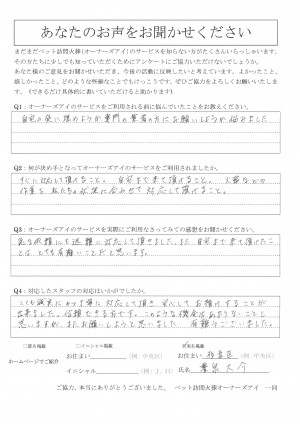 あなたのお声をお聞かせください
まだまだペット訪問火葬(オーナーズアイ)のサービスを知らない方がたくさんいらっしゃいます。
そのかたちに少しでも知っていただくためにアンケートにご協力いただけないでしょうか。
あなた様のご意見をお聞かせいただき、今後の活動に反映したいと考えています。よかったこと、
嬉しかったこと、どのような些細なことでもけっこうです。ぜひご協力をよろしくお願いいたしま
す。(できるだけ具体的に書いていただけると助かります)
Q1:オーナーズアイのサービスをご利用される前に悩んでいたことをお教えください。
自宅の使い捨のようか専門の業者の方にお願いしようか悩みました
Q2:何が決め手となってオーナーズアイのサービスをご利用されましたか。
すぐに対応して頂けること。自宅まで来て頂けること。火葬などの
作業を私たちの状況に合わせて対応して頂けること。
Q3:オーナーズアイのサービスを実際にご利用なさってみての感想をお聞かせください。
急な依頼にも迅速に対応して頂きました。また、自宅まで来て頂けたこ
とは とても有難いことだと思います。
Q4:対応したスタッフの対応はいかがでしたか。
とても誠実にかつ丁寧に対応して頂き 安心してお預けすることが
出来ました。信頼できる方です。このような機会はあまりないことと
思いますが、またお願いしようと思いました。有難うございました。
□匿名掲載 □イニシャル掲載 □実名掲載
ホームページでご紹介
お住まい (例:中央区) お住まい (例:中央区)
イニシャル (例:J.H) 氏名
ご協力、本当にありがとうございました。 ペット訪問火葬オーナーズアイ 一同